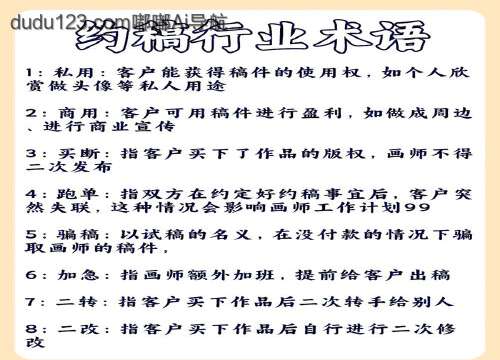 dudu123.com嘟嘟Ai导航
约稿行业术语
1：私用：客户能获得稿件的使用权，如个人欣
赏做头像等私人用途
2：商用：客户可用稿件进行盈利，如做成周边
、进行商业宣传
3：买断：指客户买下了作品的版权，画师不得
二次发布
4：跑单：指双方在约定好约稿事宜后，客户突
然失联，这种情况会影响画师工作计划99
5：骗稿：以试稿的名义，在没付款的情况下骗
取画师的稿件，
6：加急：指画师额外加班，提前给客户出稿
7：二转：指客户买下作品后二次转手给别人
8：二改：指客户买下作品后自行进行二次修
改